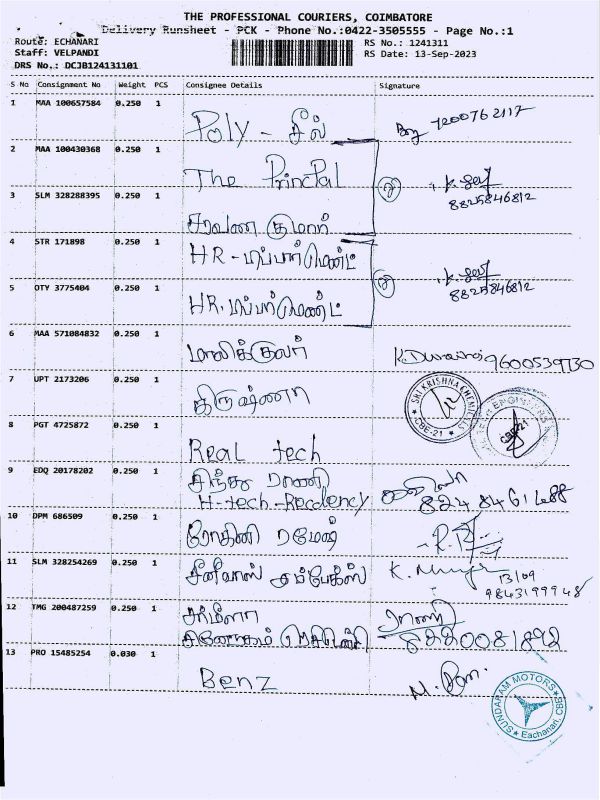 THE PROFESSIONAL COURIERS, COIMBATORE
Delivery Runsheet - PCK - Phone No.:0422-3505555 - Page No.:1
Route: ECHANARI
RS No.: 1241311
Staff: VELPANDI
RS Date: 13-Sep-2023
DRS No.: DCJB124131101
S No Consignment No Weight PCS Consignee Details Signature
1 MAA 100657584 0.250 1
Poly - சீல் 7200762117
2 MAA 100430368 0.250 1
The Princpal
8825846812
3 SLM 328288395 0.250 1
சரவண குமார்
4 STR 171898 0.250 1
HR - டிப்பார்மெண்ட்
8825846812
5 OTY 3775404 0.250 1
HR. டிப்பார்மெண்ட்
6 MAA 571084832 0.250 1
மாலிக்குவர் 9600539730
7 UPT 2173206 0.250 1
கிருஷ்ணா
SRI KRISHNA CHEMIC
CBE-21
CBE-21
8 PGT 4725872 0.250 1
Real tech
9 EDQ 20178202 0.250 1
சிந்து ராணி
H-tech-Recdency 8248461488
10 DPM 686509 0.250 1
ரோகினி ரமேஷ்
11 SLM 328254269 0.250 1
சீனிவாஸ்
13/09
9843199948
12 TMG 200487259 0.250 1
சர்மிளா ராணி
8220081892
13 PRO 15485254 0.030 1
Benz
SUNDARAM MOTORS
Eachanari, CBE